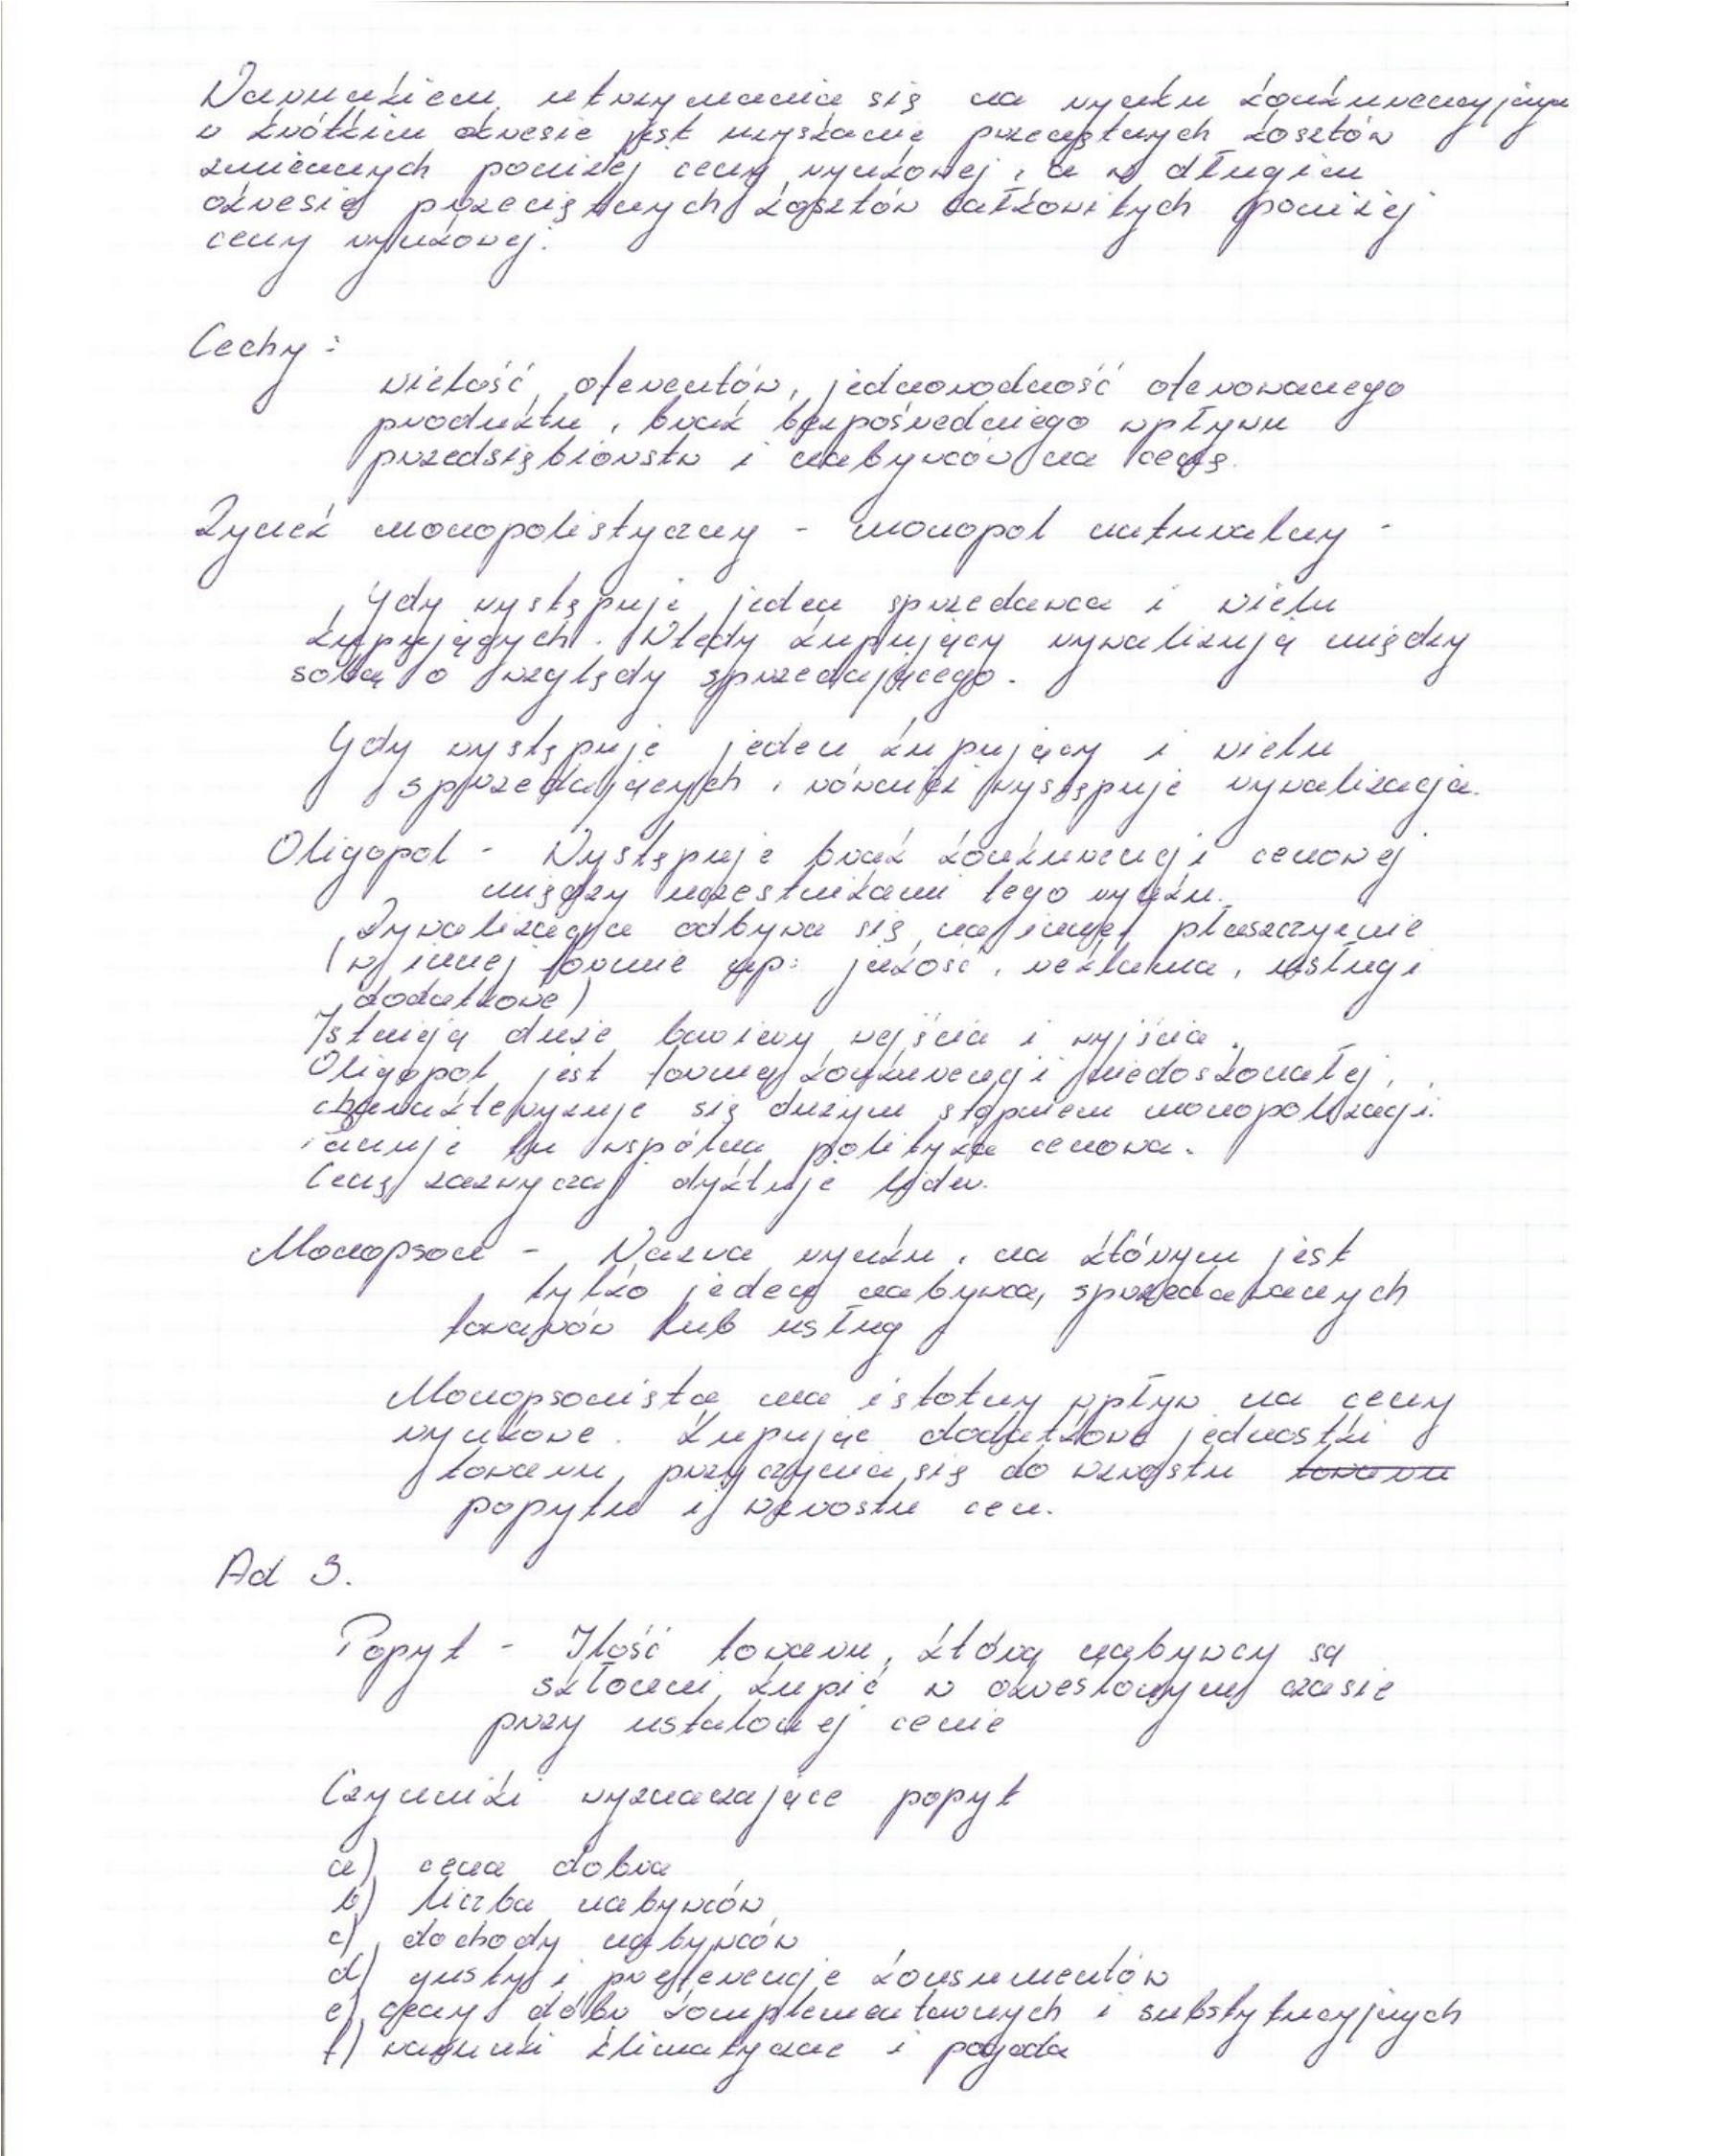 Warunkiem utrzymania się na rynku konkurencyjnym
w krótkim okresie jest uzyskanie przeciętnych kosztów
zmiennych poniżej ceny rynkowej, a w długim
okresie przeciętnych kosztów całkowitych poniżej
ceny rynkowej.
Cechy:
wielość oferentów, jednorodność oferowanego
produktu, brak bezpośredniego wpływu
przedsiębiorstw i nabywców na cenę.
Rynek monopolistyczny - monopol naturalny -
Gdy występuje jeden sprzedawca i wielu
kupujących. Wtedy kupujący rywalizują między
sobą o względy sprzedającego.
Gdy występuje jeden kupujący i wielu
sprzedających, również występuje rywalizacja.
Oligopol - Występuje brak konkurencji cenowej
między uczestnikami tego rynku.
Rywalizacja odbywa się na innej płaszczyźnie
(w innej formie np: jakość, reklama, usługi
dodatkowe)
Istnieją duże bariery wejścia i wyjścia.
Oligopol jest formą konkurencji niedoskonałej,
charakteryzuje się dużym stopniem monopolizacji.
tu wspólna polityka cenowa.
Cenę zazwyczaj dyktuje lider.
Monopson - Nazwa rynku, na którym jest
tylko jeden nabywca, sprzedawanych
towarów lub usług
Monopsonista ma istotny wpływ na ceny
rynkowe. Kupując dodatkowe jednostki
towaru, przyczynia się do wzrostu towaru
popytu i wzrostu cen.
Ad 3.
Popyt - Ilość towaru, którą nabywcy są
skłonni kupić w określonym czasie
przy ustalonej cenie
Czynniki wyznaczające popyt
a) cena dobra
b) liczba nabywców
c) dochody nabywców
d) gusty i preferencje konsumentów
e) ceny dóbr komplementarnych i substytucyjnych
f) warunki klimatyczne i pogoda